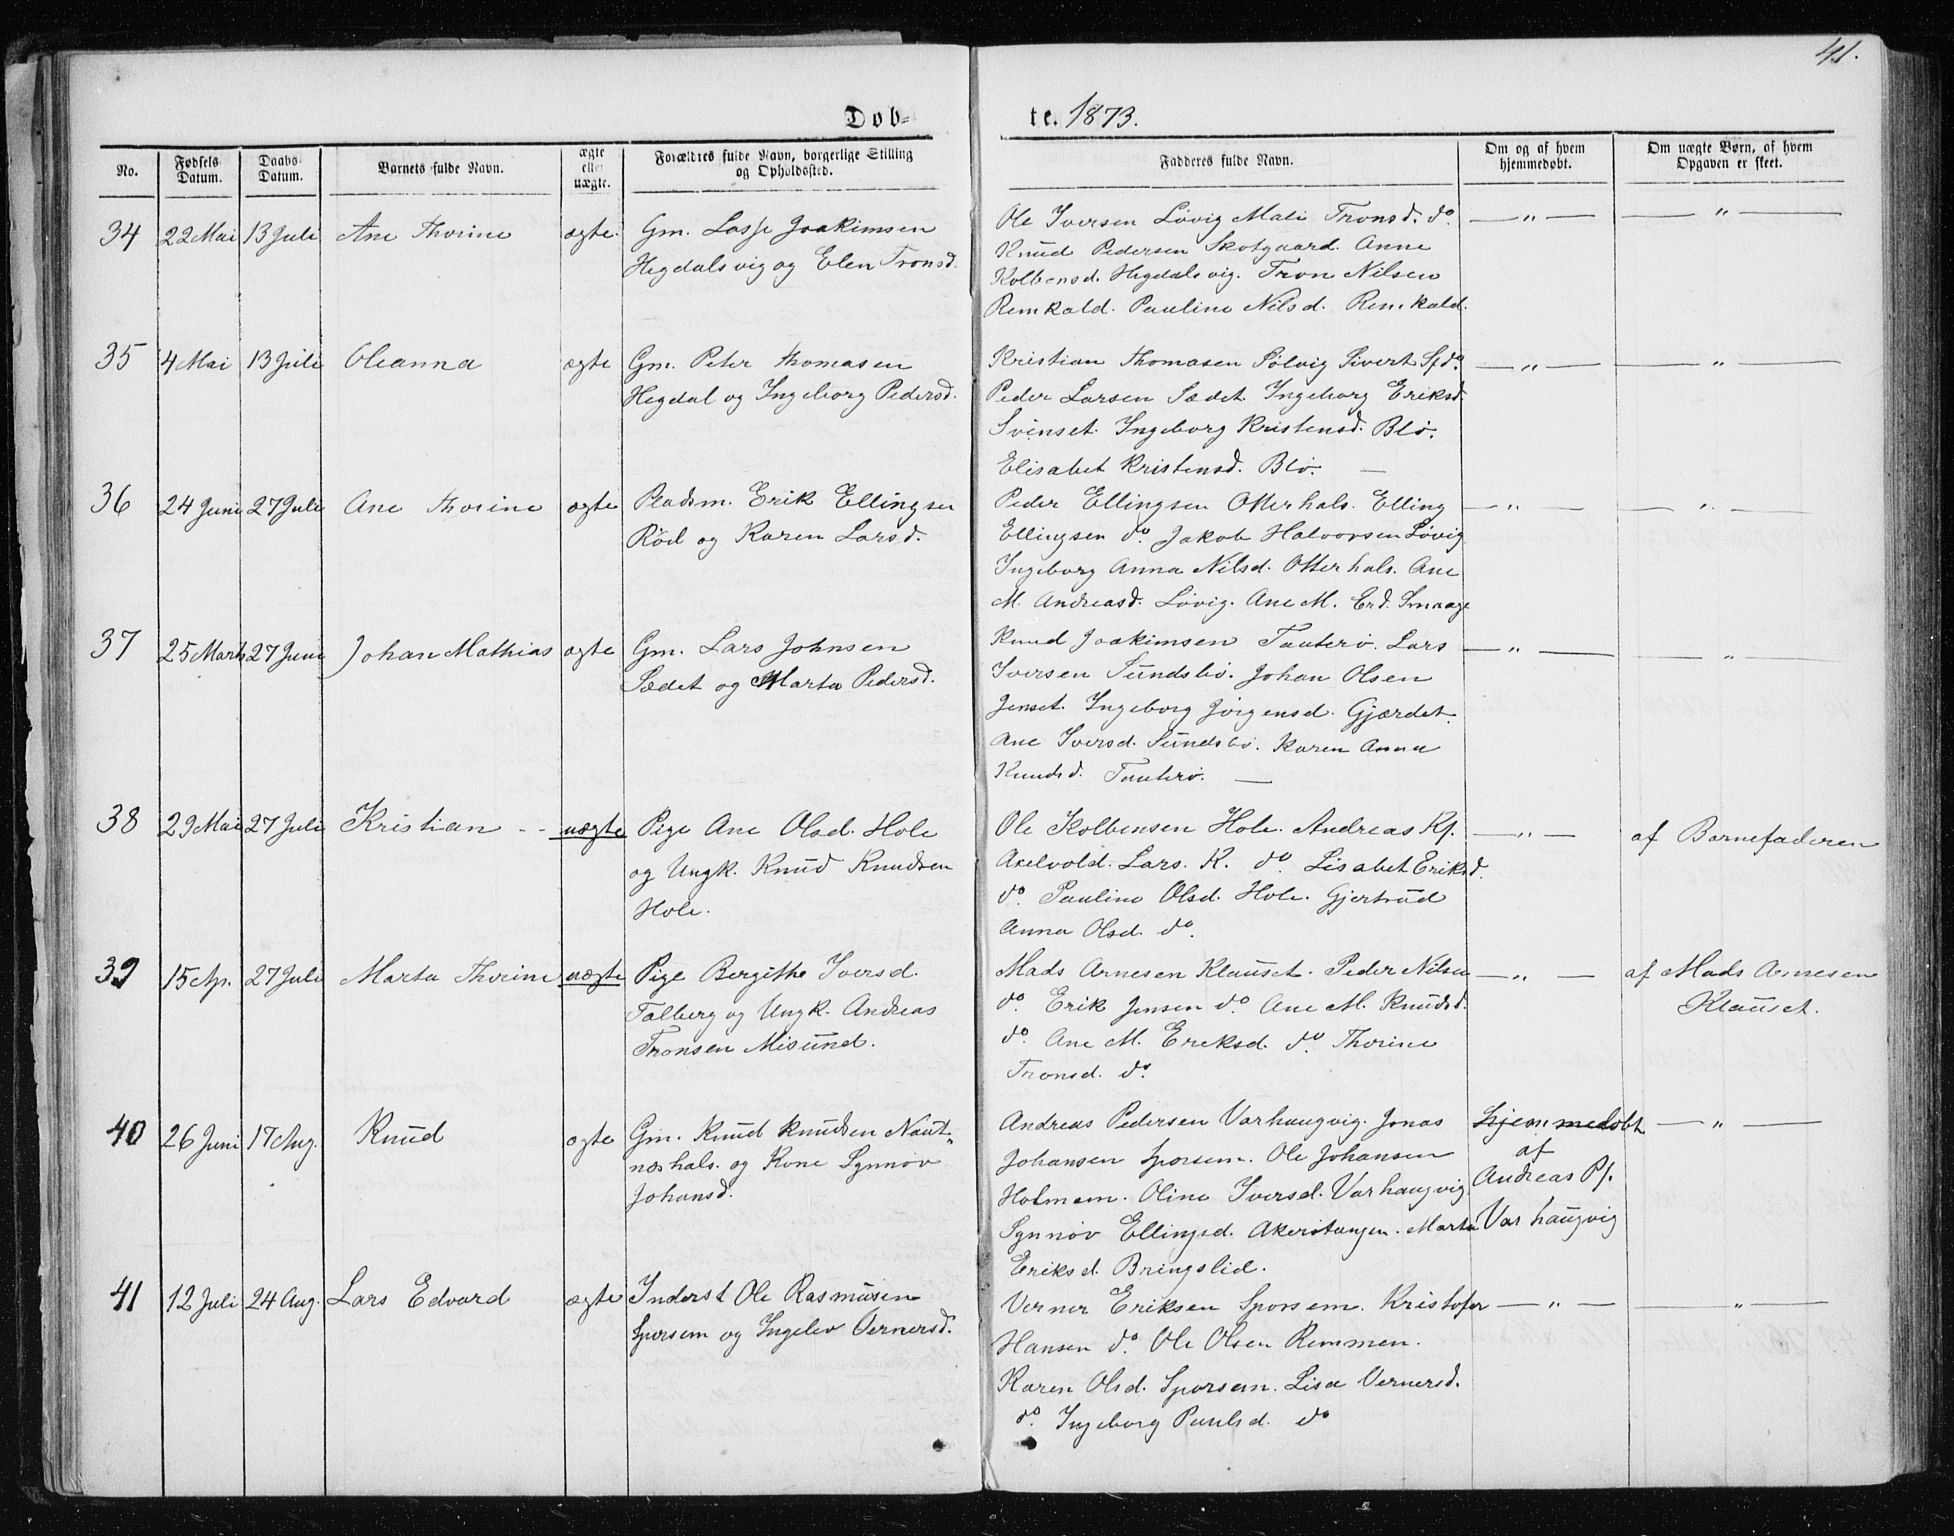 41.
Døb- te. 1873.
No. Fødsels Datum. Daabs Datum. Barnets fulde Navn. ægte eller uægte. Forældres fulde Navn, borgerlige Stilling og Opholdssted. Fadderes fulde Navn. Om og af hvem hjemmedøbt. Om uægte Børn, af hvem Opgaven er skeet.
34 22 Mai 13 Juli Ane Thorine ægte. Gm. Lasse Joakimsen
Hegdalsvig og Elen Tronsd.
Ole Iversen Løvig Mali Tronsd. do. — „ — — „ —
Knud Pedersen Skotgaard. Anne
Kolbensd. Hegdalsvig. Tron Nilsen
Remkald. Pauline Nilsd. Remkald.
35 4 Mai 13 Juli Oleanna ægte Gm. Peter Thomasen
Hegdal og Ingeborg Pedersd.
Kristian Thomasen Sølvig Sivert Sf do. — „ — — „ —
Peder Larsen Sædet Ingeborg Eriksd.
Svinset. Ingeborg Kristensd. Blø.
Elisabet Kristensd. Blø. —
36 24 Juni 27 Juli Ane Thorine ægte Pladsm. Erik Ellingsen
Rød og Karen Larsd.
Peder Ellingsen Otterhals. Elling — „ — — „ —
Ellingsen do. Jakob Halvorsen Løvig
Ingeborg Anna Nilsd. Otterhals. Ane
M. Andreasd. Løvig. Ane M. Erd. Smaage
37 25 Marts 27 Juni Johan Mathias ægte Gm. Lars Johnsen
Sædet og Marta Pedersd.
Knud Joakimsen Tauterø. Lars — „ — — „ —
Iversen Sundsbø. Johan Olsen
Jenset. Ingeborg Jørgensd. Gjærdet.
Ane Iversd. Sundsbø. Karen Anna
Knudsd. Tauterø. —
38 29 Mai 27 Juli Kristian - - uægte Pige Ane Olsd. Hole
og Ungk. Knud Knudsen
Hole.
Ole Kolbensen Hole. Andreas Kf. — „ — af Barnefaderen
Axelvold. Lars. K. do. Lisabet Eriksd.
do. Pauline Olsd. Hole. Gjertrud
Anna Olsd. do.
39 15 Ap. 27 Juli Marta Thorine uægte Pige Bergithe Iversd.
Talberg og Ungk. Andreas
Tronsen Misund.
Mads Arnesen Klauset. Peder Nilsen — „ — af Mads Arnesen
do. Erik Jensen do. Ane M. Knudsd. Klauset.
do. Ane M. Ereksd. do. Thorine
Tronsd. do.
40 26 Juni 17 Aug. Knud ægte Gm. Knud Knudsen Naut-
neshals. og Kone Synnøv
Johansd.
Andreas Pedersen Varhaugvig. Jonas hjemmedøbt — „ —
Johansen Sporsem. Ole Johansen af
Holmem. Oline Iversd. Varhaugvig Andreas Pf.
Synnøv Ellingsd. Akerstangen. Marta Varhaugvig
Eriksd. Bringslid.
41 12 Juli 24 Aug. Lars Edvard ægte Inderst Ole Rasmusen
Sporsem og Ingelev Vernersd.
Verner Eriksen Sporsem. Kristofer — „ — — „ —
Hansen do. Ole Olsen Remmen.
Karen Olsd. Sporsem. Lisa Vernersd.
do. Ingeborg Paulsd. do